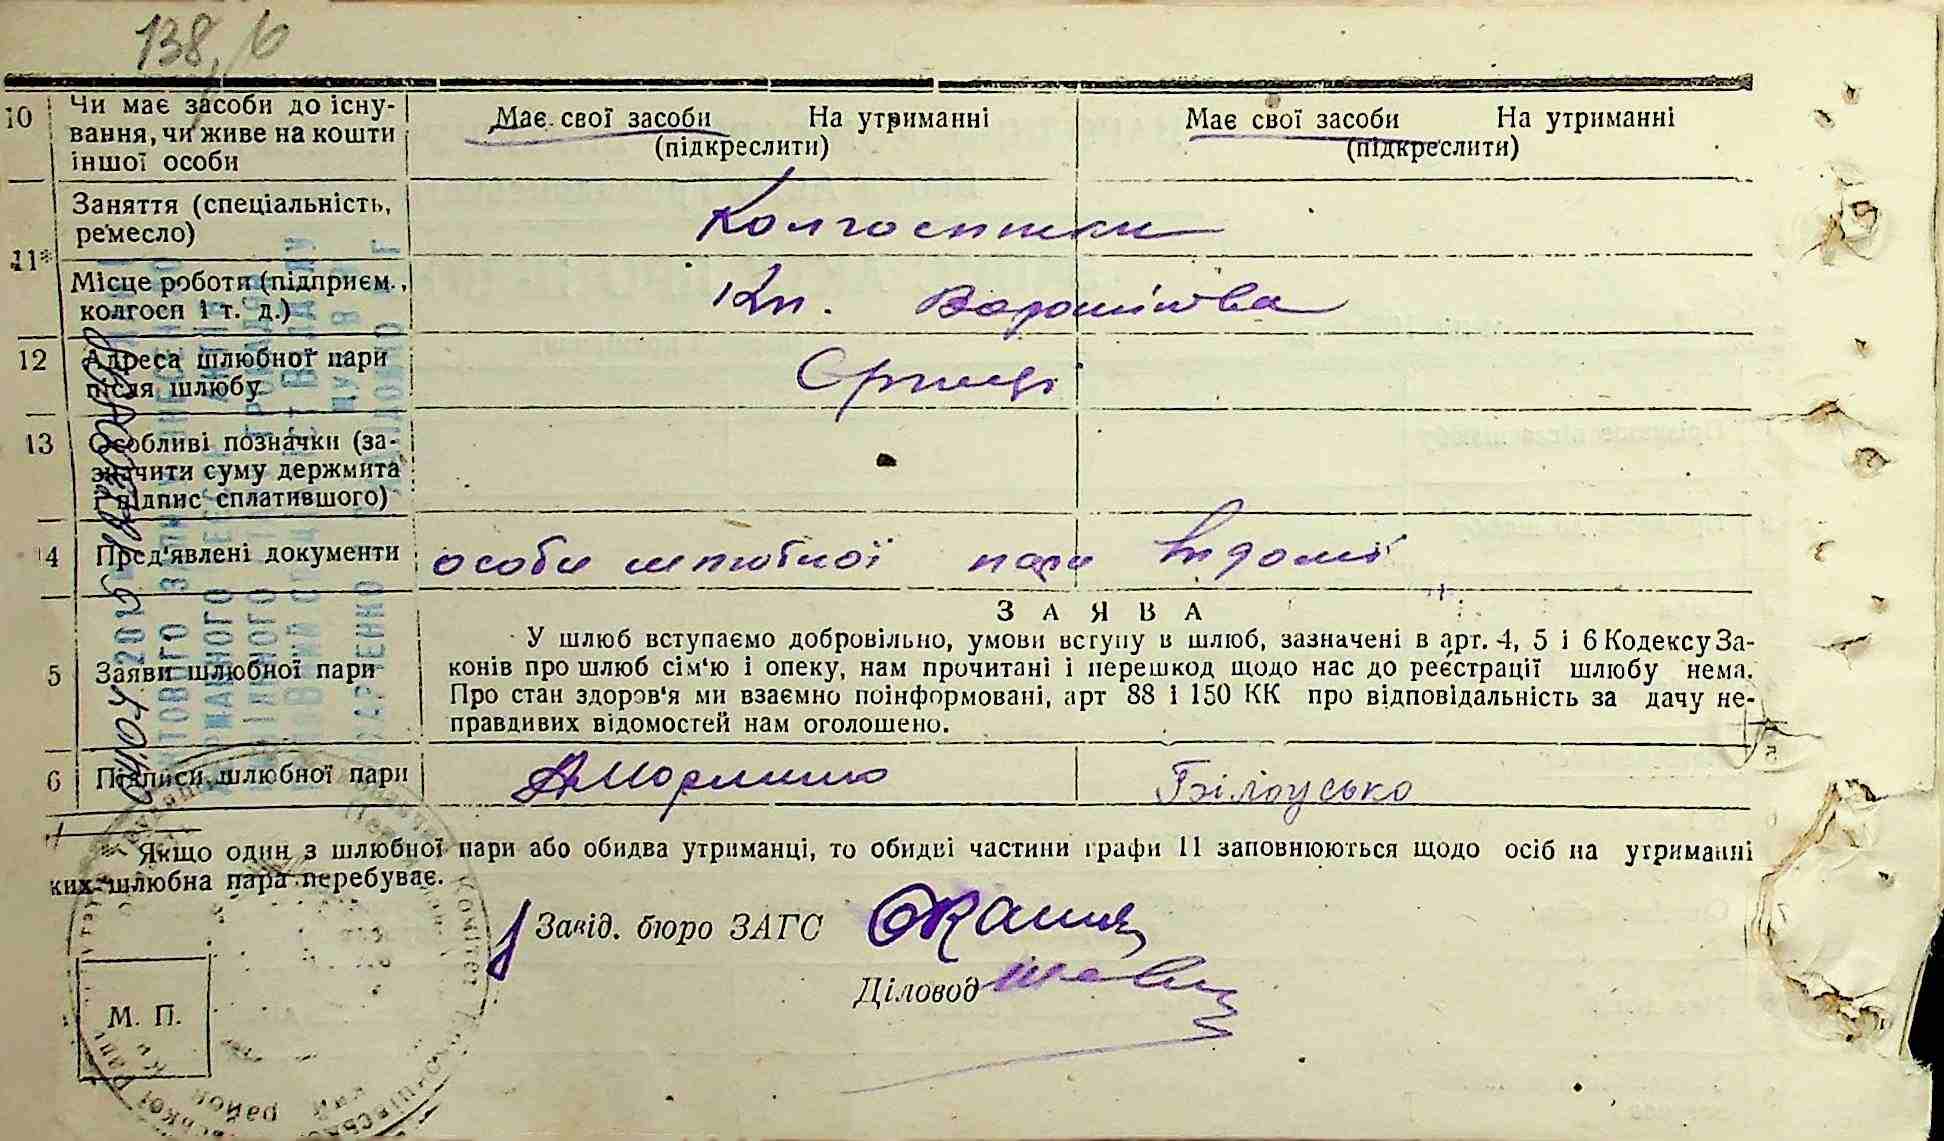 138,
10 Чи має засоби до існу-
вання, чи живе на кошти
іншої особи
Має свої засоби На утриманні
(підкреслити)
Має свої засоби На утриманні
(підкреслити)
11* Заняття (спеціальність,
ремесло)
Колгоспники
Місце роботи (підприєм.,
колгосп і т. д.)
Кл. Ворошилова
12 Адреса шлюбної пари
після шлюбу
13 Особливі позначки (за-
значити суму держмита
і підпис сплатившого)
14 Пред'явлені документи
особи шлюбної пари відомі
5 Заяви шлюбної пари
ЗАЯВА
У шлюб вступаємо добровільно, умови вступу в шлюб, зазначені в арт. 4, 5 і 6 Кодексу За-
конів про шлюб сім'ю і опеку, нам прочитані і перешкод щодо нас до реєстрації шлюбу нема.
Про стан здоров'я ми взаємно поінформовані, арт 88 і 150 КК про відповідальність за дачу не-
правдивих відомостей нам оголошено.
6 Підписи шлюбної пари
Білоусько
Якщо один з шлюбної пари або обидва утриманці, то обидві частини графи 11 заповнюються щодо осіб на утриманні
ких шлюбна пара перебуває.
Завід. бюро ЗАГС
Діловод
М. П.